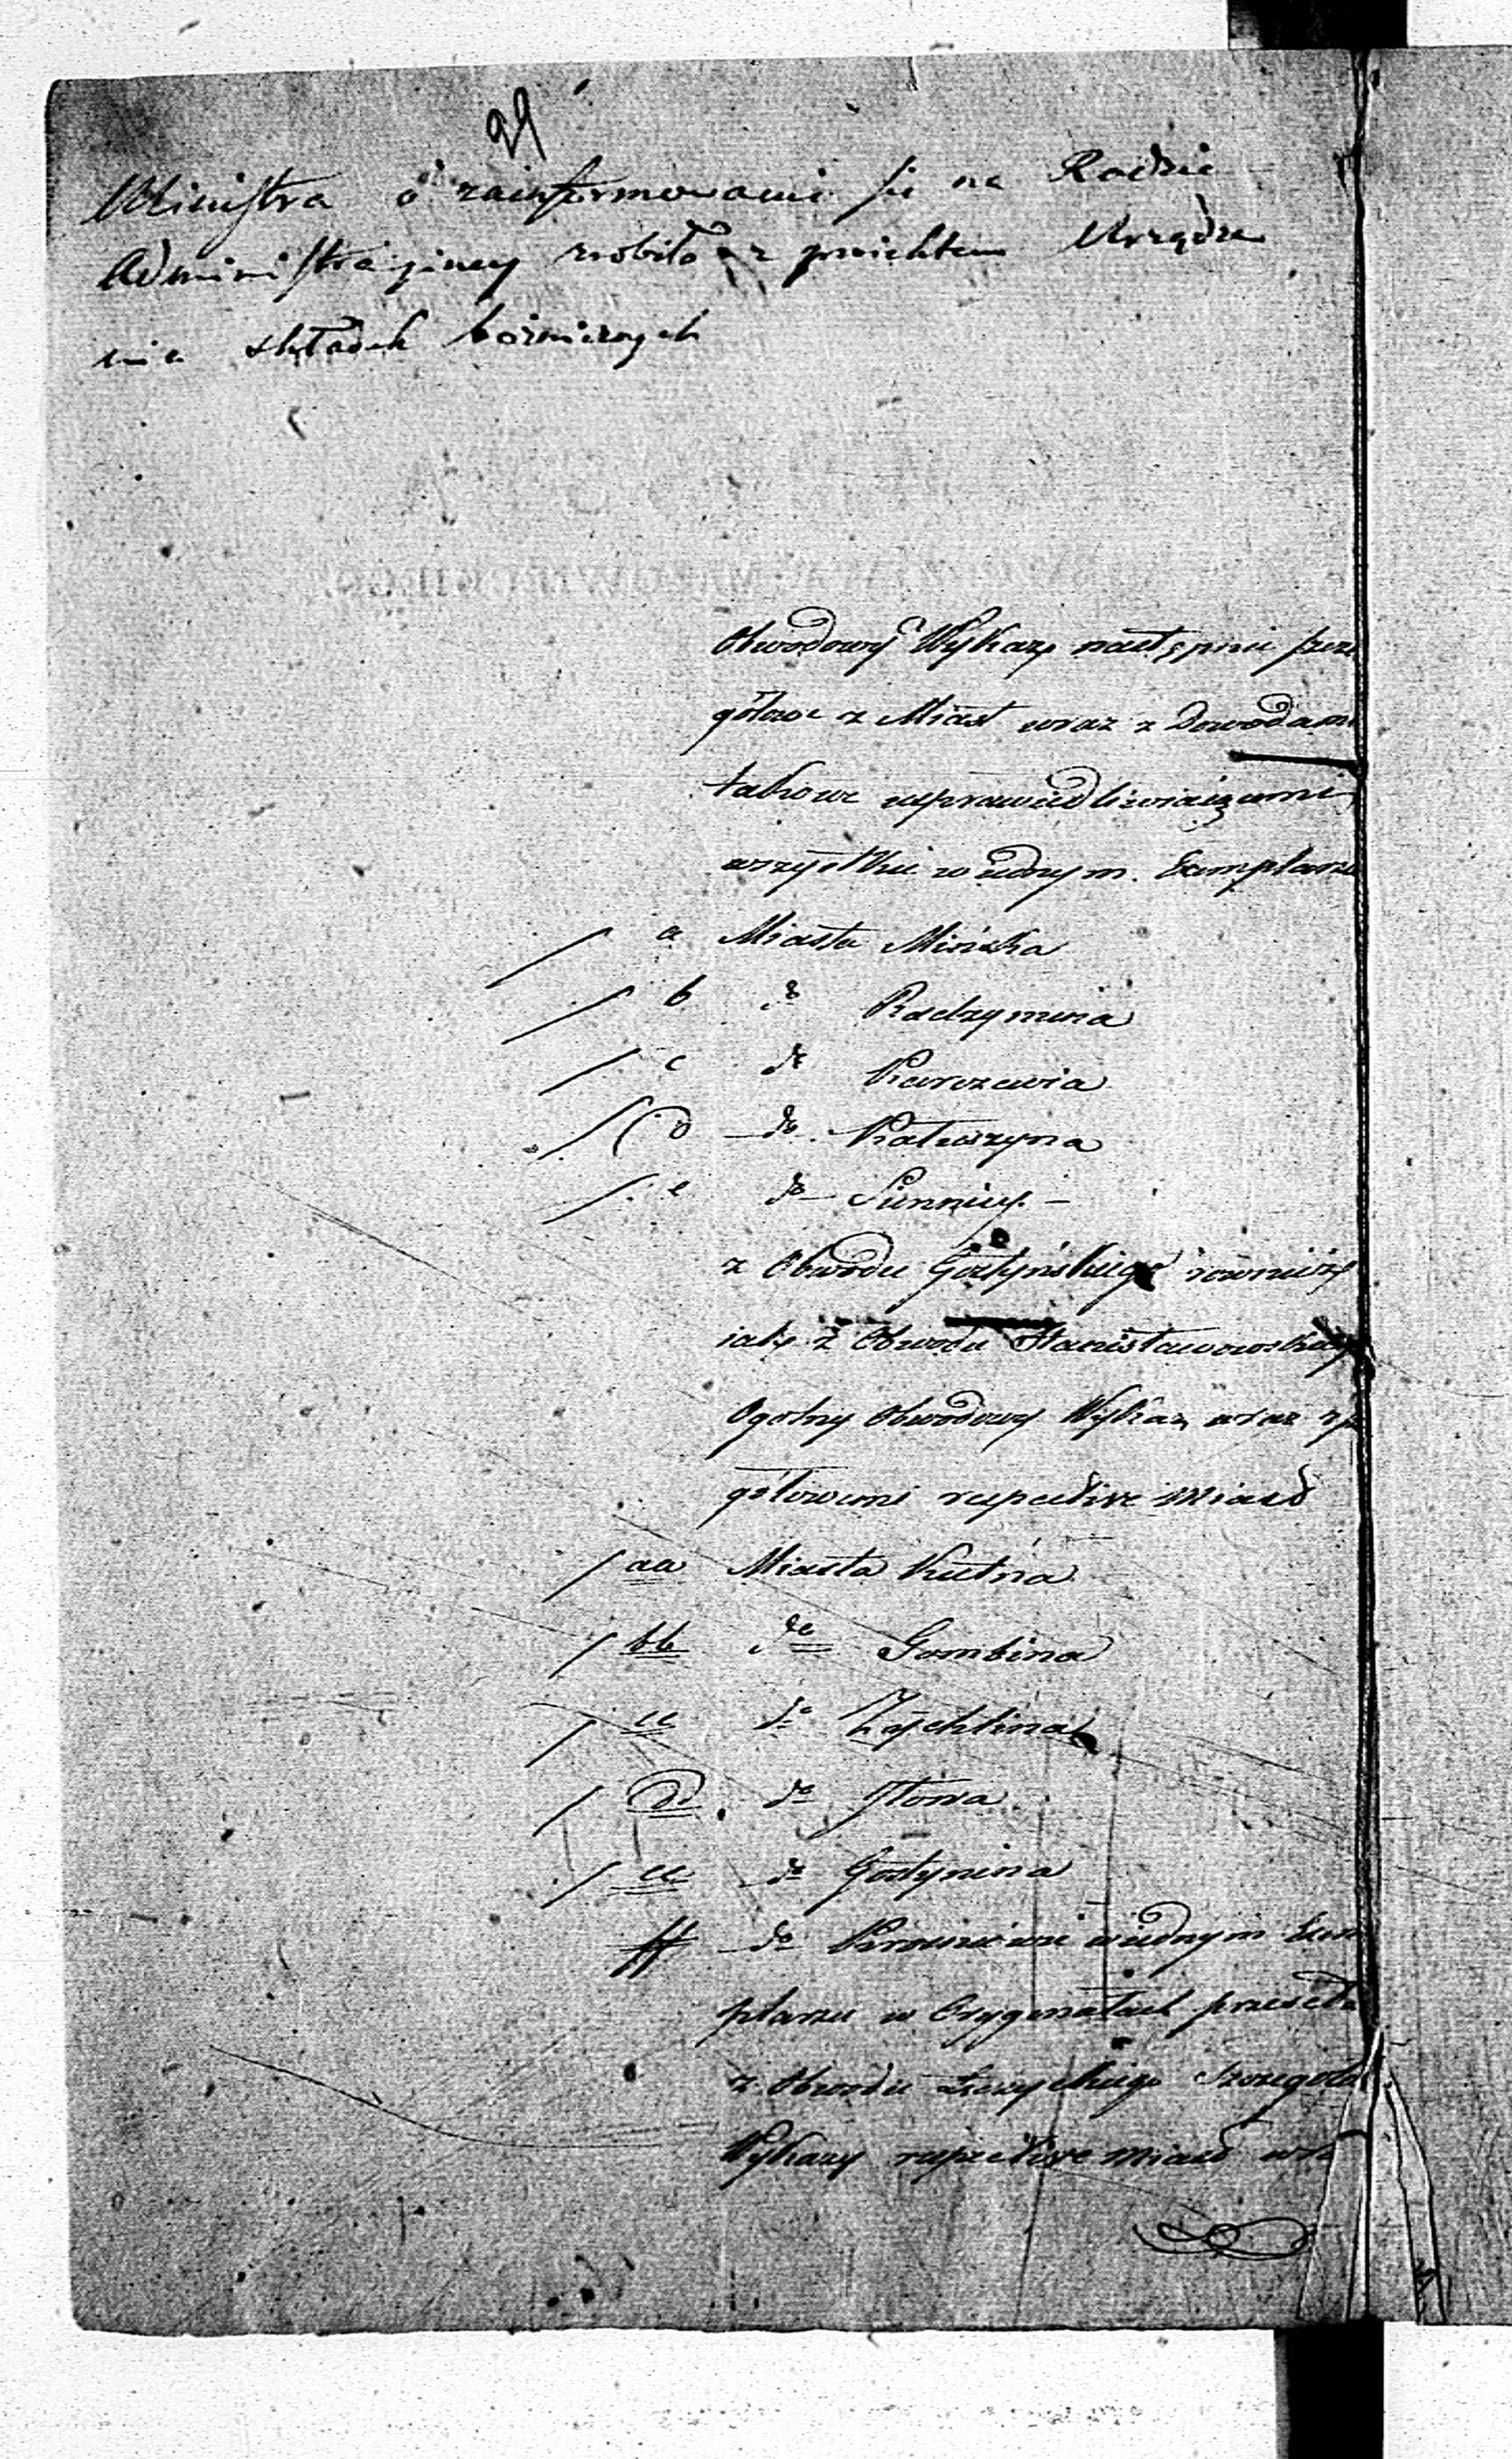 29
Ministra o zainformowanie się na Radzie
Administracyiney zrobiło z Urządze
nia składek bożniczych
Obwodowy Wykazy następnie szcze
gółowe z Miast wraz z Dowodami
takowe usprawiedliwiaiącemi
wszystkie w iednym Exemplarzu
a Miasta Mińska
b do Radzymina
c do Karczewia
d do Kałuszyna
e do Siennicy
z Obwodu Gostyńskiego rownież
iak z Obwodu Stanisławowskiego
Ogolny Obwodowy Wykaz wraz
gółowemi respective Miast
aa Miasta Kutna
bb do Gombina
cc do Zychlina
dd do Iłowa
ee do Gostynina
ff do Krosniewic w iednym Exem
plarzu w Oryginałach
z Obwodu Łęczyckiego Szczegoło
Wykazy respective Miast wra